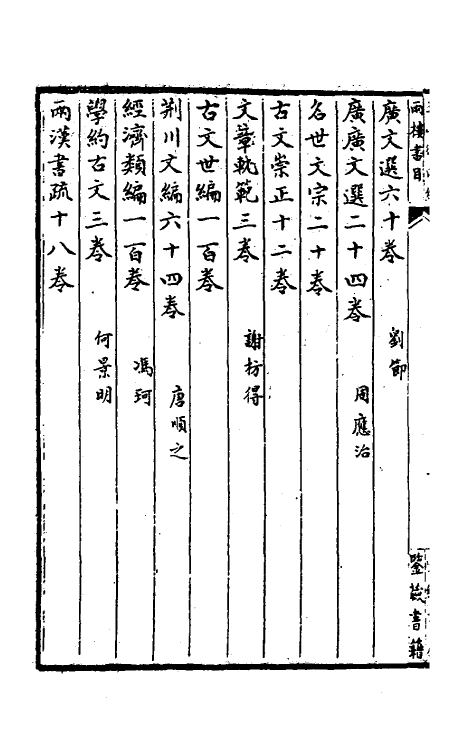 兩樓書目
鑒藏書籍
廣文選六十卷 劉節
廣廣文選二十四卷 周應治
名世文宗二十卷
古文崇正十二卷
文章軌範三卷 謝枋得
古文世編一百卷
荆川文編六十四卷 唐順之
經濟類編一百卷 馮珂
學約古文三卷 何景明
兩漢書疏十八卷